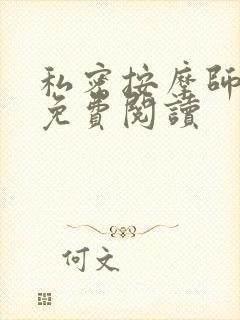 私密按摩師
免費閱讀
何文